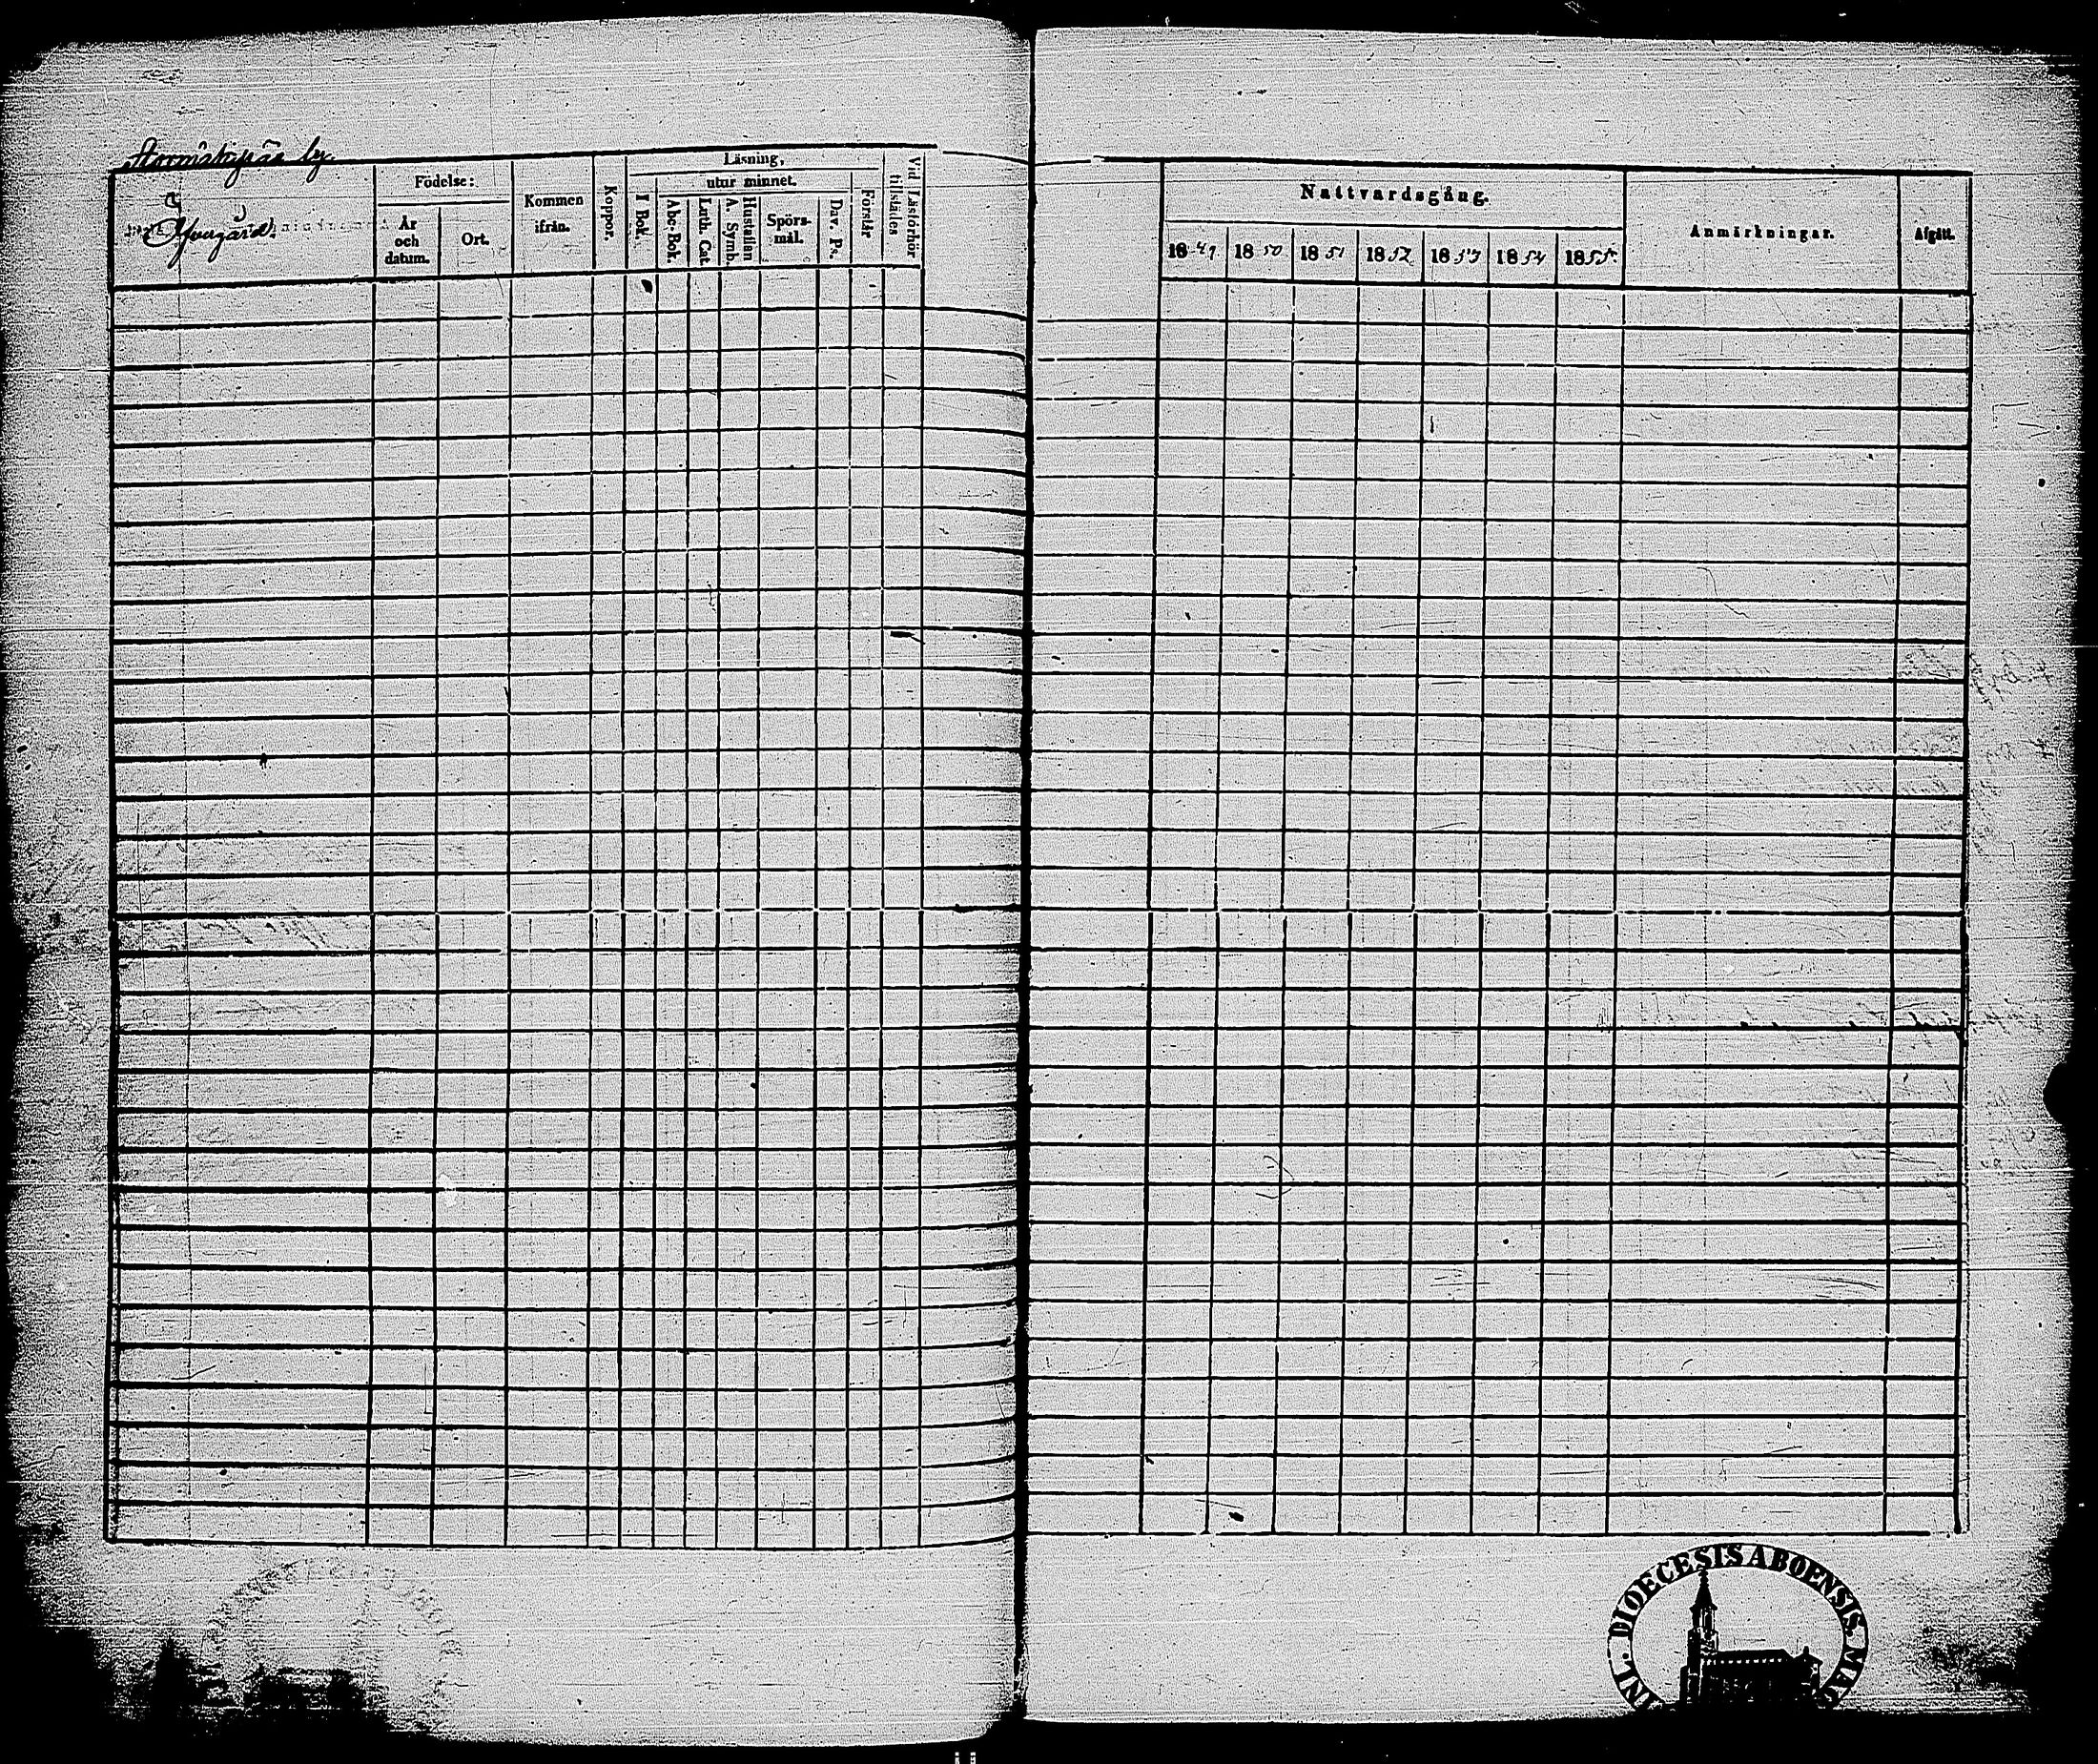 by.
Läsning,
Födelse:
utur minnet.
Kommen ifrån.
Koppor.
I Bok.
Abc-Bok
Luth. Cat.
A. Symb. Hustaflan
Spörs-mål.
Dav. Ps.
Förstår
Vid Läsförhör tillstädes
År och datum.
Ort.
Nattvardsgång.
Anmärkningar.
Afgått.
1849 1850 1851 1852 1853 1854 1855
DIOECESIS ABOENSIS. MAG